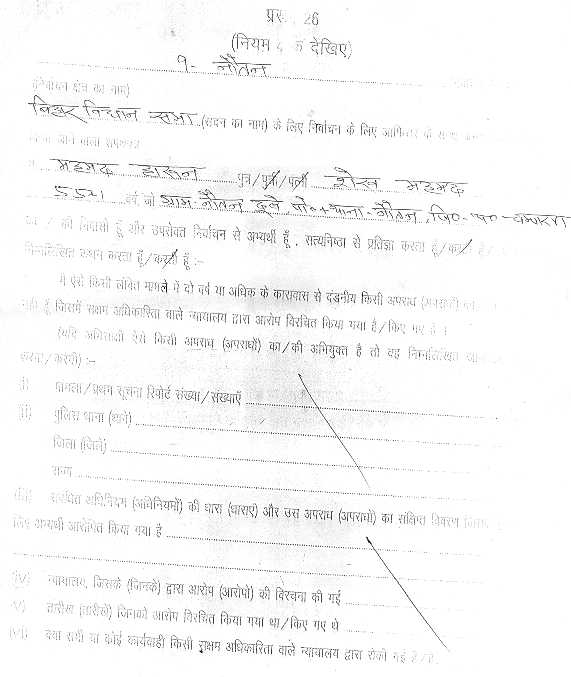 26
(नियम देखिए)
१- नौतन
(निर्वाचन क्षेत्र का नाम)
बिहार विधान सभा (सदन का नाम) के लिए निर्वाचन के लिए
महमद हारून पुत्र/पुत्री/पत्नी शेख महमद
वर्ष, जो ग्राम-नौतन दूबे, पो०+थाना-नौतन, जि०-प०-चम्पारण
का / की निवासी हूँ और उपरोक्त निर्वाचन से अभ्यर्थी हूँ, सत्यनिष्ठा से प्रतिज्ञा करता हूँ/करती हूँ/
निम्नलिखित कथन करता हूँ/करती हूँ :-
मैं ऐसे किसी लंबित मामले में दो वर्ष या अधिक के कारावास से दंडनीय किसी अपराध
नहीं हूँ जिसमें सक्षम अधिकारिता वाले न्यायालय द्वारा आरोप विरचित किया गया है/किए गए हैं ।
(यदि अभिसाक्षी ऐसे किसी अपराध (अपराधों) का/की अभियुक्त है तो वह निम्नलिखित
करेगा/करेगी) :-
i) मामला/प्रथम सूचना रिपोर्ट संख्या/संख्याएँ
(ii) पुलिस थाना (थाने)
जिला (जिले)
राज्य
(iii) संबंधित अधिनियम (अधिनियमों) की धारा (धाराएं) और उस अपराध (अपराधों) का संक्षिप्त विवरण
लिए अभ्यर्थी आरोपित किया गया है
iv) न्यायालय, जिसके (जिनके) द्वारा आरोप (आरोपों) की विरचना की गई
v) तारीख (तारीखें) जिनको आरोप विरचित किया गया था/किए गए थे
(vi) क्या सभी या कोई कार्यवाही किसी सक्षम अधिकारिता वाले न्यायालय द्वारा रोकी गई है/हैं